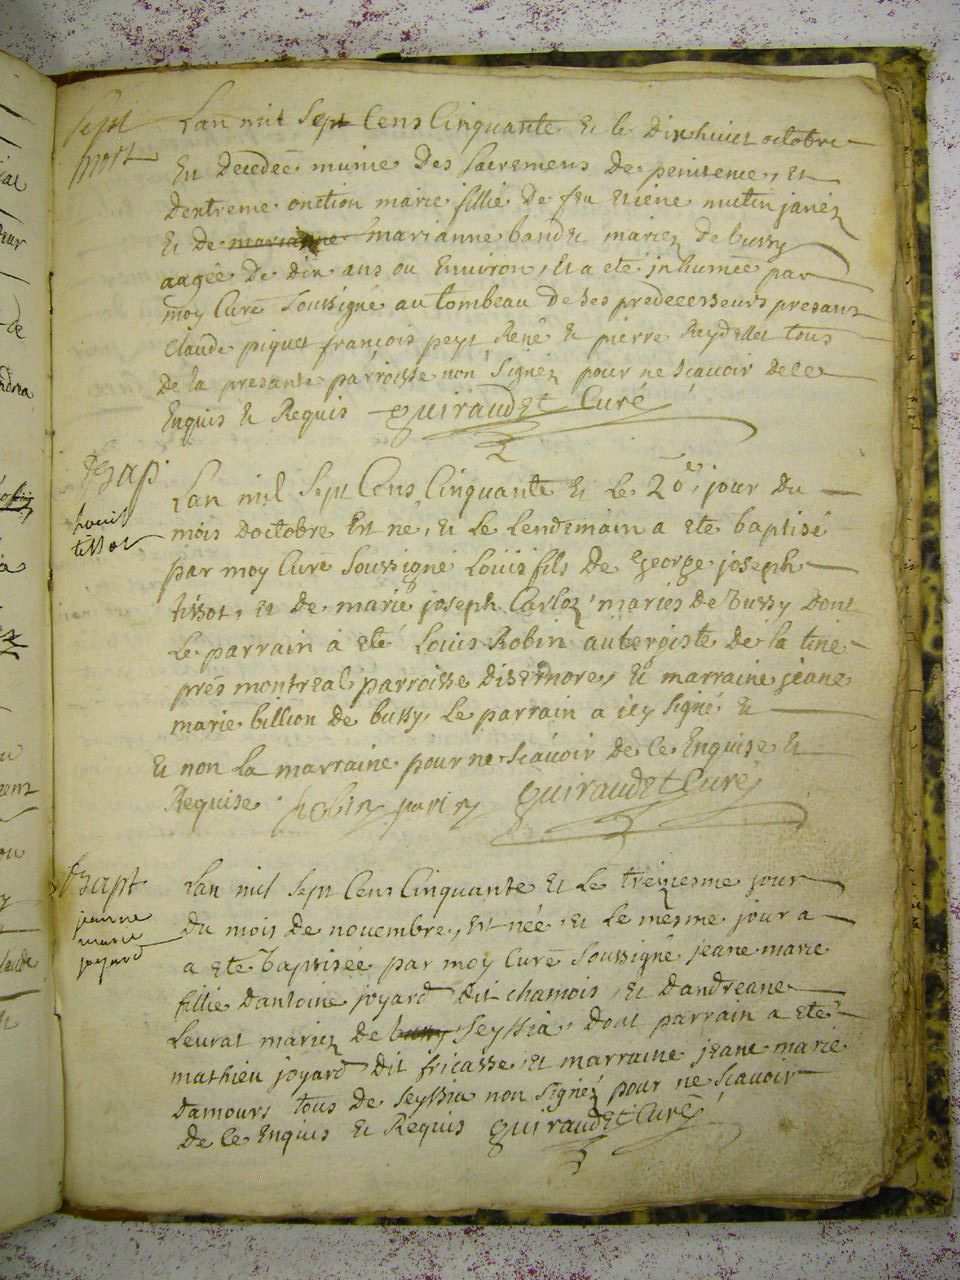 sept
mort
Lan mil sept Cens Cinquante et le dixhuict octobre
est decedeé munie des sacremens de penitence, et
dextreme onction marie fillie de feu etiene mutin janéz
et de marianne marianne bandet mariez de bussy
aagée de dix ans ou Environ, et a eté inhumée par
moy Curé Soussigné au tombeau de ses predecesseurs presans
claude piquet françois peyt René et pierre Reydellet tous
de la presante parroisse non signez pour ne sçavoir de ce
Enquis et Requis guiraudet Curé
Bap
louis
tissot
Lan mil sept Cens Cinquante et le 20e, jour du
mois doctobre est né, et le lendemain a eté baptisé
par moy Curé soussigné Louis fils de george joseph
tissot, et de marie joseph Carloz, mariés de Bussy dont
le parrain à eté Louis Robin aubergiste de la tine
prés montreal parroisse disernore, et marraine jeane
marie billion de bussy, le parrain a icy signé et
et non la marraine pour ne scavoir de ce Enquise et
Requise Robin parin guiraudet Curé
Bapt
jeanne
marie
joyard
Lan mil sept Cens Cinquante et le treiziesme jour
du mois de novembre, est née, et le mesme jour a
a eté Baptisée par moy Curé soussigné jeane marie
fillie dantoine joyard dit chamois, et dandreane
Leurat mariez de bussy seyssia, dont parrain a eté
mathieu joyard dit fricasse, et marraine jeane marie
damours tous de seyssia non signéz pour ne scavoir
de ce Enquis et Requis guiraudet Curé